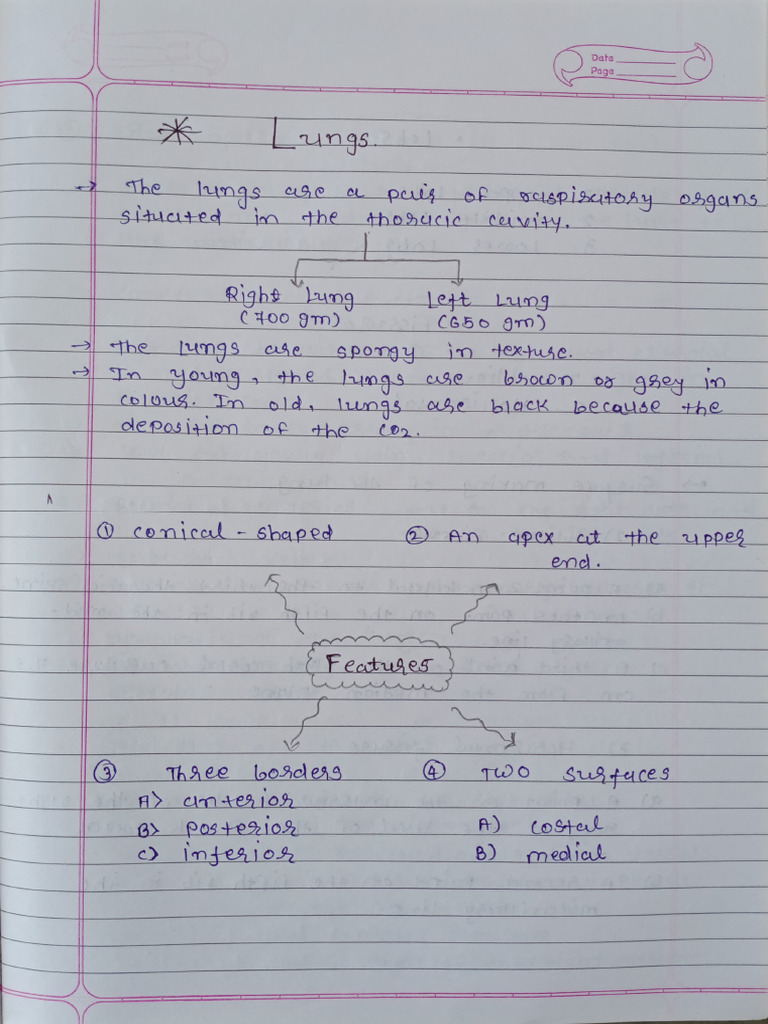 Date
Page
Lungs.
→ The lungs are a pair of raspiratory organs
situated in the thoracic cavity.
Right Lung Left Lung
(700 gm) (650 gm)
→ The lungs are spongy in texture.
→ In young, the lungs are brown or grey in
colour. In old, lungs are black because the
deposition of the CO2.
① conical - shaped ② An apex at the upper
end.
Features
③ Three borders ④ Two surfaces
A> anterior
B> posterior A) costal
C> inferior B) medial